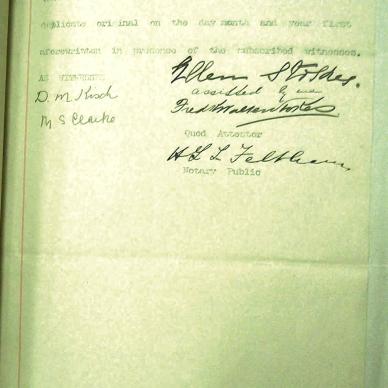 duplicate original on the day month and year first
aforewritten in presence of the subscribed witnesses.
AS WITNESSES
Ellen Stokes.
assisted by me
D. M. Kisch
Fred Walker Stokes
M S Clarke
Quod Attestor
H L L Feltham
Notary Public